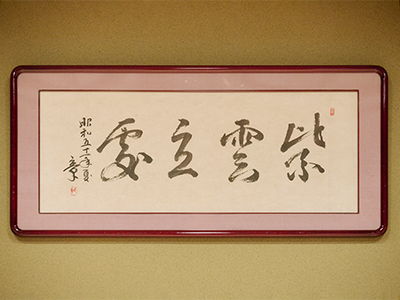 紫雲立處
昭和五十一年夏
章